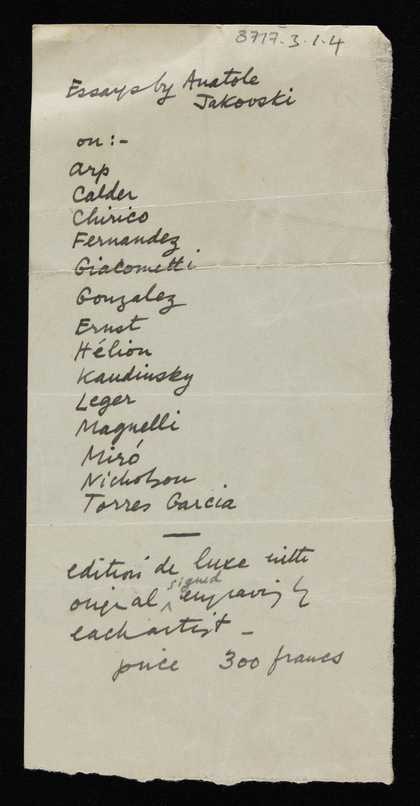 8717.3.1.4
Essays by Anatole
Jakovski
on:-
Arp
Calder
Chirico
Fernandez
Giacometti
Gonzalez
Ernst
Hélion
Kandinsky
Leger
Magnelli
Miró
Nicholson
Torres Garcia
edition de luxe with
signed
original ^ engraving by
each artist -
price 300 francs